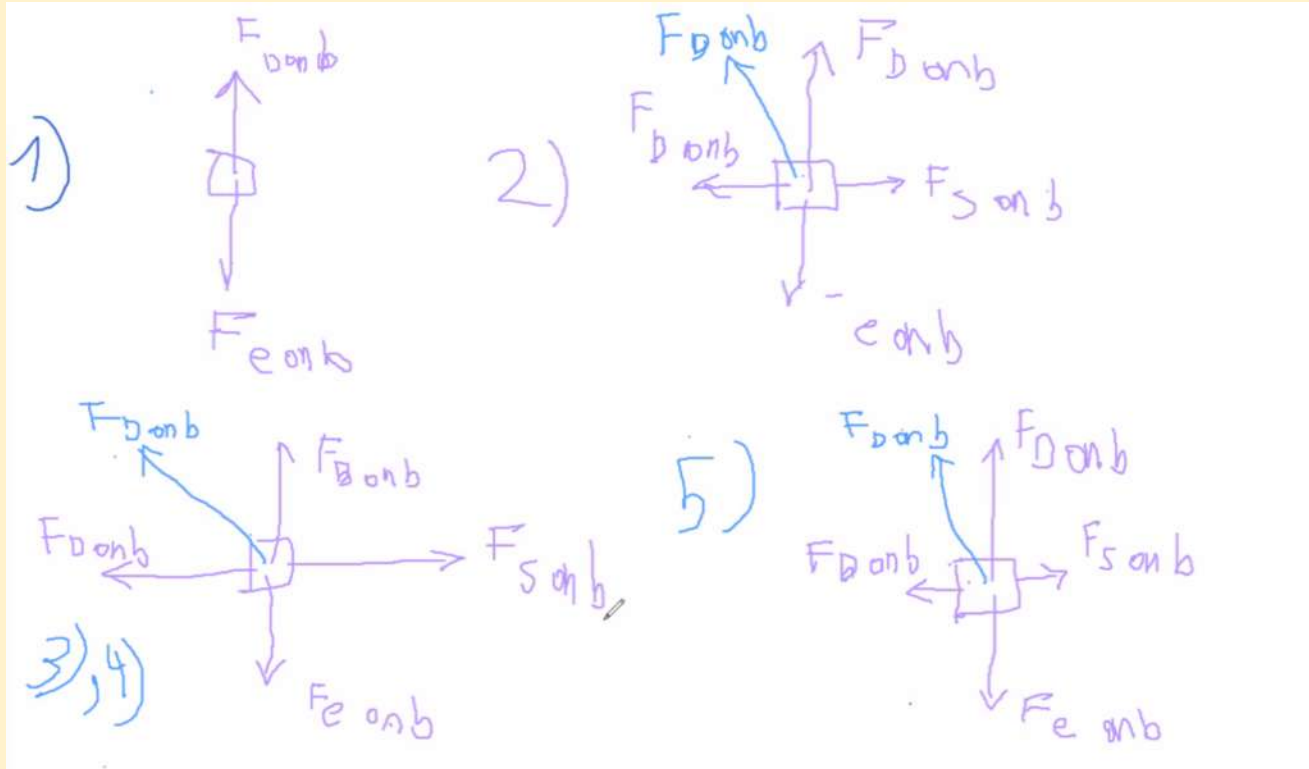 1)
F D on b
F e on b
2)
F D on b
F D on b
F D on b
F S on b
e on b
3), 4)
F D on b
F B on b
F D on b
F S on b
F e on b
5)
F D on b
F D on b
F D on b
F S on b
F e on b